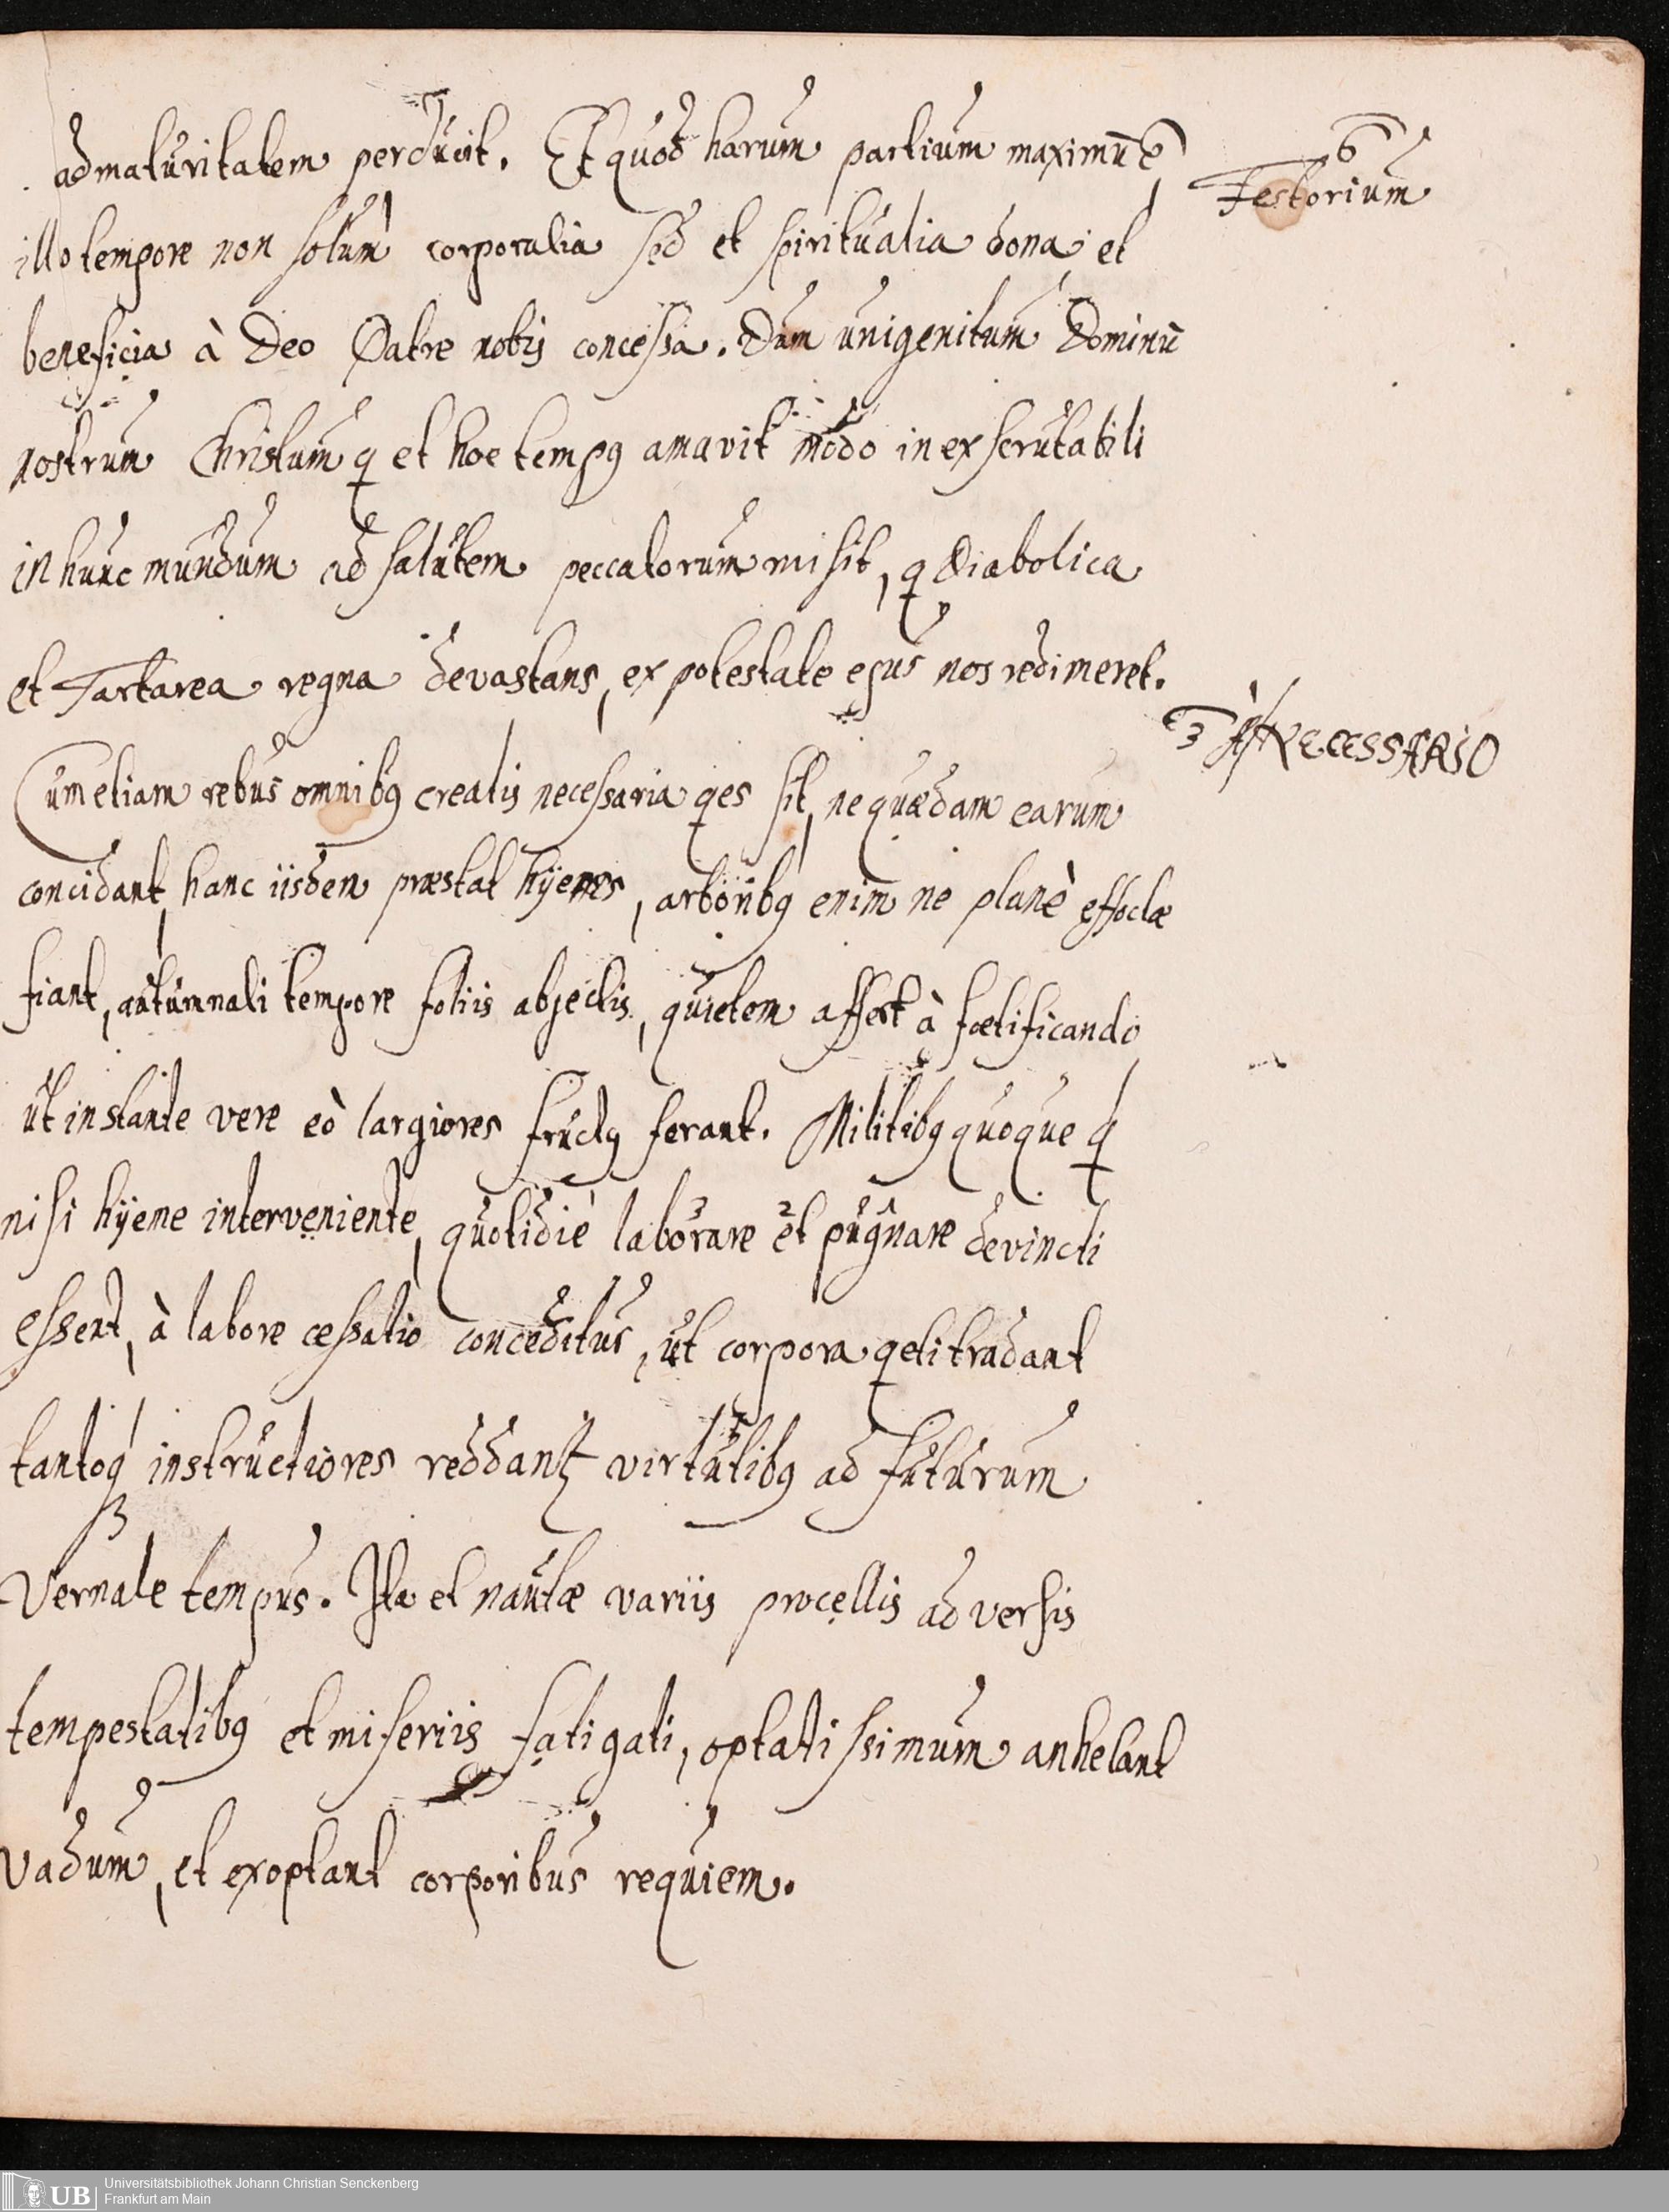 admaturitatem perducit. Et quod harum partium maximū ē,
6
Festorium
illo tempore non solum corporalia sed et spiritualia dona et
beneficia à Deo Patre nobis concessa. Dum unigenitum Dominū
nostrum Christum q et hoc tempꝰ amavit modo inexscrutabili
in hunc mundum ad salutem peccatorum misit, q Diabolica
et Tartarea regna devastans, ex potestate ejus nos redimeret.
3 À NECESSARIO
Cum etiam rebus omnibꝰ creatis necessaria qes sit, ne quædam earum
concidant, hanc iisdem præstat hÿems, arboribꝰ enim ne planè effoetæ
fiant, autumnali tempore foliis abjectis, quietem affert à foetificando
ut instante vere eò largiores fructꝰ ferant. Militibꝰ quoque q
nisi hÿeme interveniente, quotidiè laborare et pugnare devincti
essent, à labore cessatio conceditur, ut corpora qeti tradant
tantoq instructiores reddant virtutibꝰ ad futurum
Vernale tempus. Ita et nautæ variis procellis adversis
tempestatibꝰ et miseriis fatigati, optatissimum anhelant
vadum, et exoptant corporibus requiem.
UB
Universitätsbibliothek Johann Christian Senckenberg
Frankfurt am Main